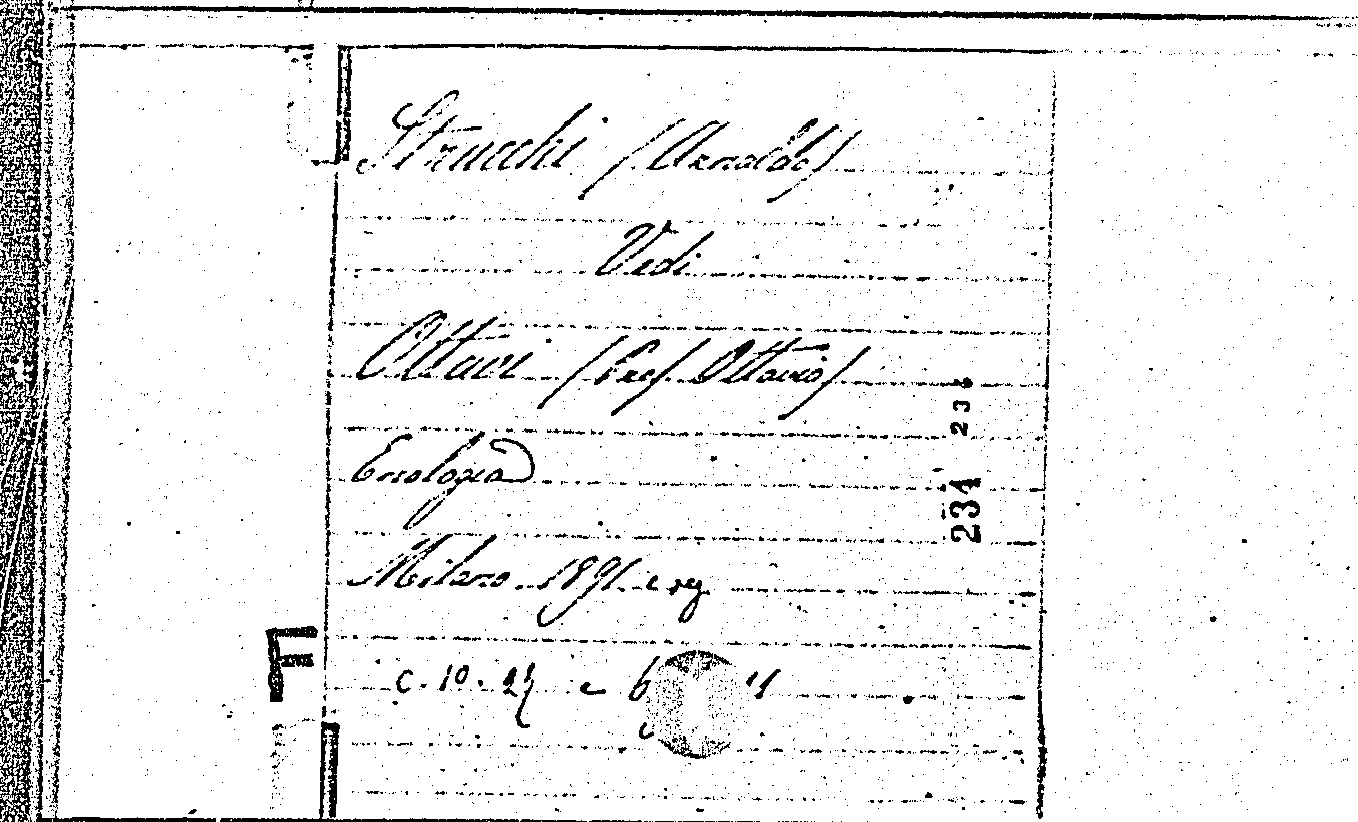 Strucchi (Arnaldo)
Vedi
Ottavi (Prof Ottavio)
Enologia
Milano 1891 e seg
C. 10. 27 e
234